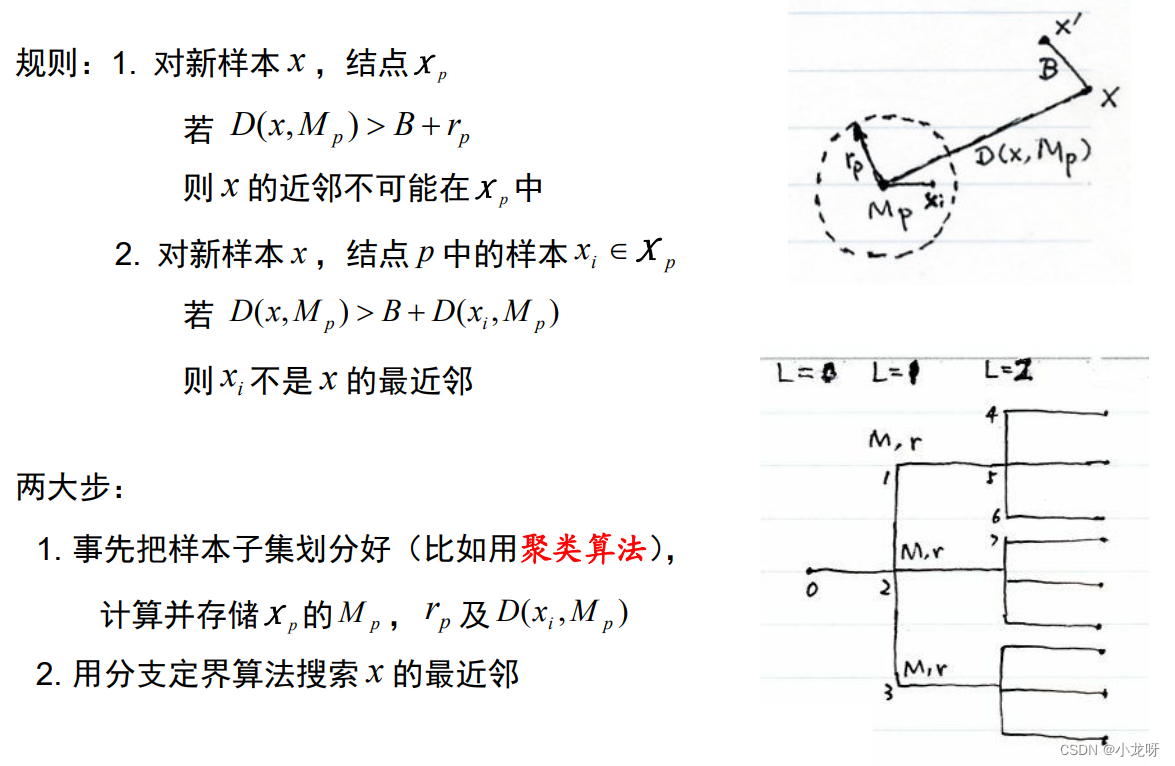 规则：1. 对新样本 x ，结点 𝒳p
若 D(x,Mp) > B + rp
则 x 的近邻不可能在 𝒳p 中
2. 对新样本 x ，结点 p 中的样本 xi ∈ 𝒳p
若 D(x,Mp) > B + D(xi,Mp)
则 xi 不是 x 的最近邻
两大步：
1. 事先把样本子集划分好（比如用聚类算法），
计算并存储 𝒳p 的 Mp ， rp 及 D(xi,Mp)
2. 用分支定界算法搜索 x 的最近邻
x'
B
x
D(x,Mp)
rp
xi
Mp
L=0 L=1 L=2
4
M,r
1
5
6
7
M,r
0
2
M,r
3
CSDN @小龙呀